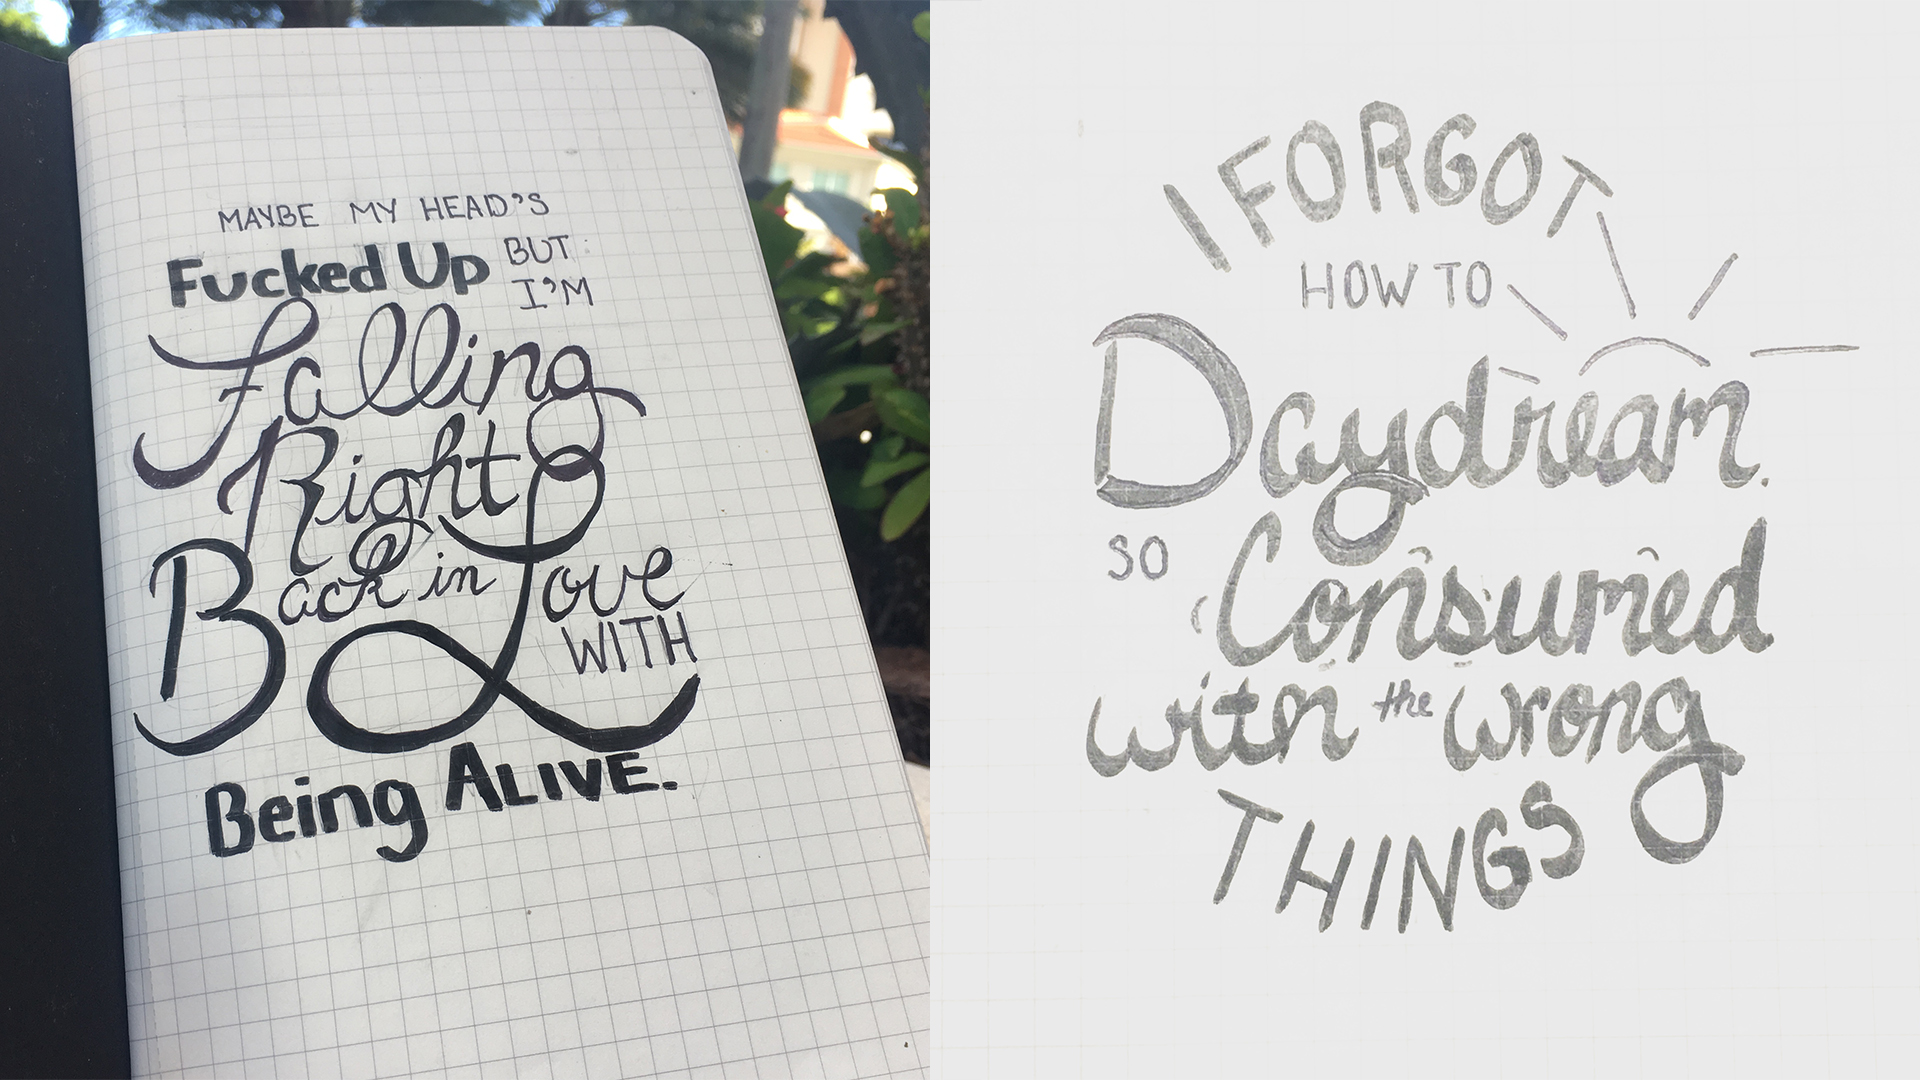 MAYBE MY HEAD'S
Fucked Up BUT
I'M
Falling
Right
Back in Love
WITH
Being ALIVE.
I FORGOT
HOW TO
Daydream.
SO Consumed
with the wrong
THINGS